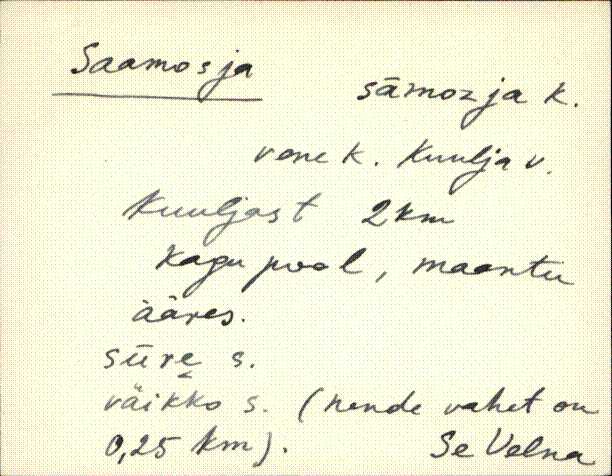 Saamosja
sāmozja k.
vene k. Kuulja v.
Kuuljast 2km
Kagu pool, maantee
ääres.
sūre s.
väikko s. (nende vahet on
0,25 km). Se Velna